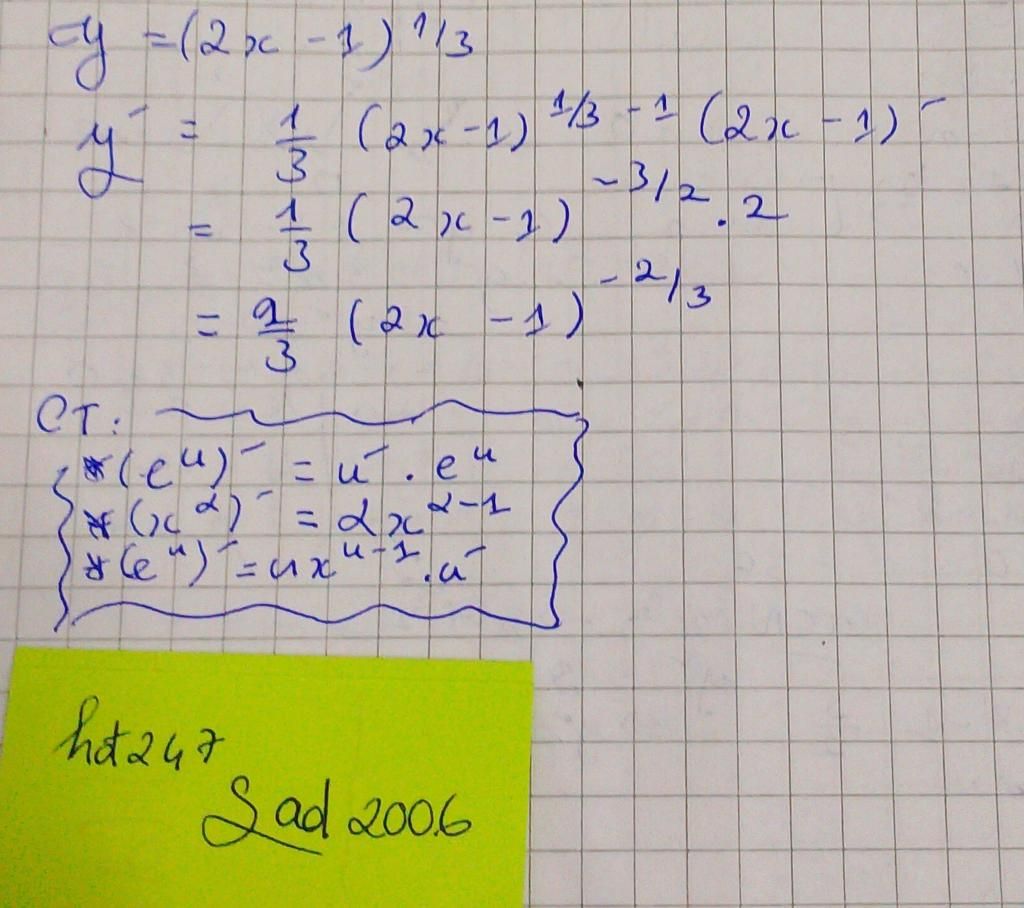 y = (2x - 1)^1/3
y' = 1/3 (2x - 1)^1/3 - 1 (2x - 1)'
= 1/3 (2x - 1)^-3/2 . 2
= 2/3 (2x - 1)^-2/3
CT:
*(e^u)' = u' . e^u
*(x^2)' = 2x^2-1
*(e^u)' = ux^u-1 . u'
hot247
Sad 2006